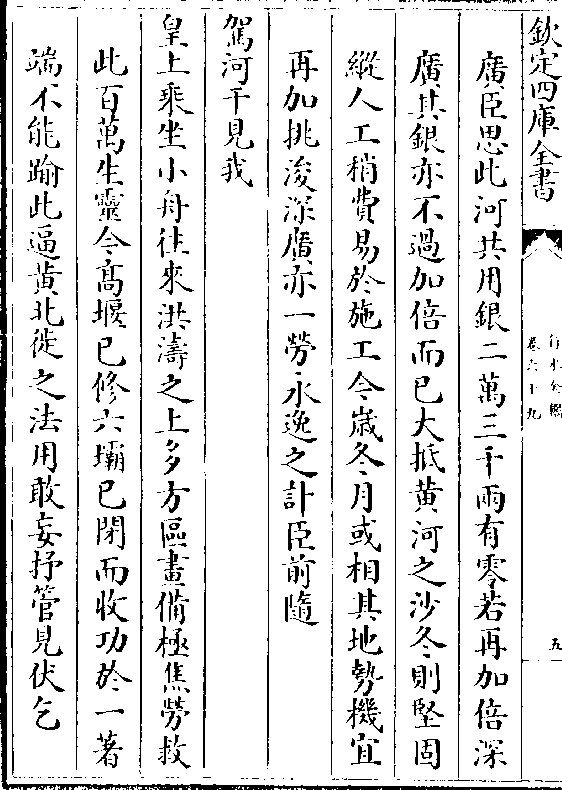 欽定四庫全書
行水金鑑
卷六十九
五
廣臣思此河共用銀二萬三千兩有零若再加倍深
廣其銀亦不過加倍而已大抵黄河之沙冬則堅固
縱人工稍費易於施工今嵗冬月或相其地勢機宜
再加挑浚深廣亦一勞永逸之計臣前隨
駕河干見我
皇上乘坐小舟往來洪濤之上多方區畫備極焦勞救
此百萬生靈今髙堰已修六壩已閉而收功於一著
端不能踰此逼黄北徙之法用敢妄抒管見伏乞